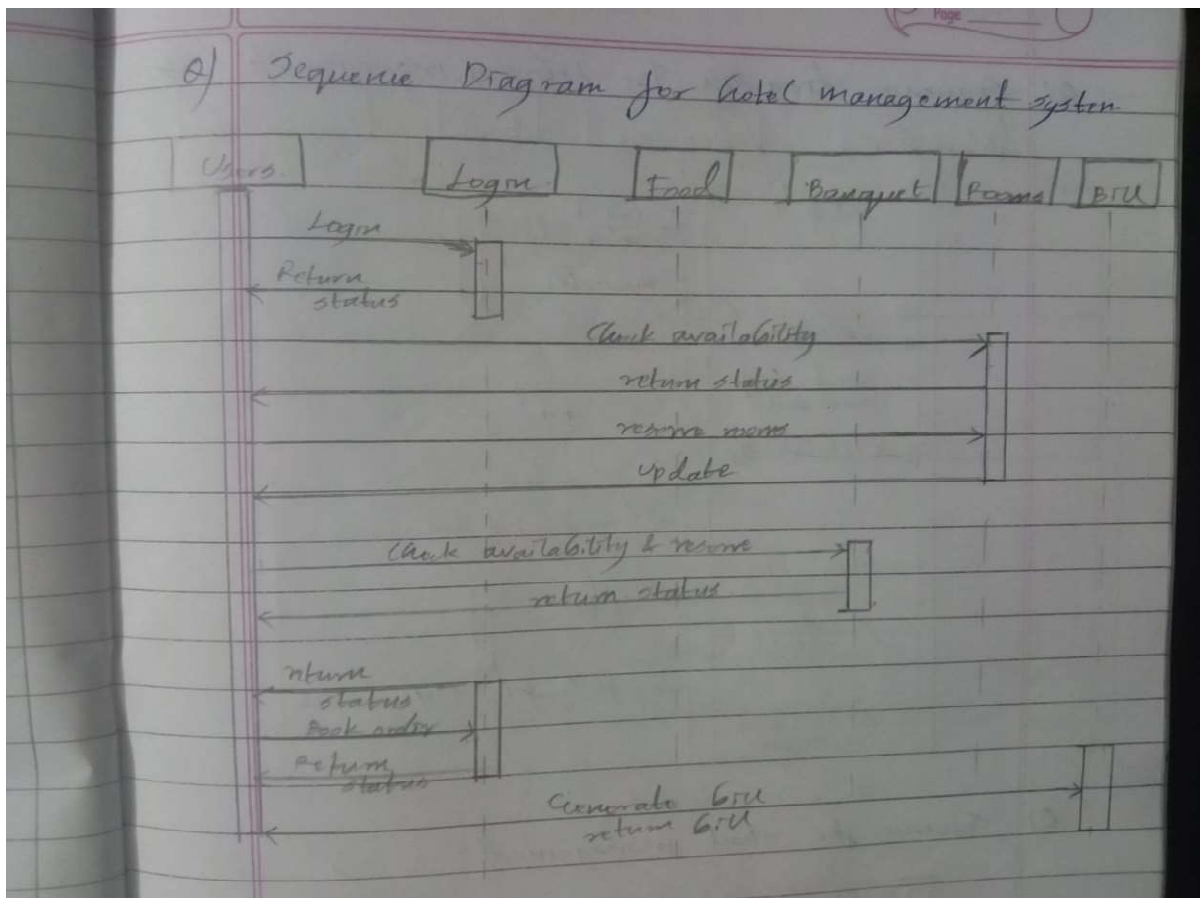 Page
Q) Sequence Diagram for hotel management system
Users Login Food Banquet Rooms Bill
Login
Return
status
Check availability
return status
reserve rooms
update
Check availability & reserve
return status
return
status
Book order
Return
status
Generate bill
return bill